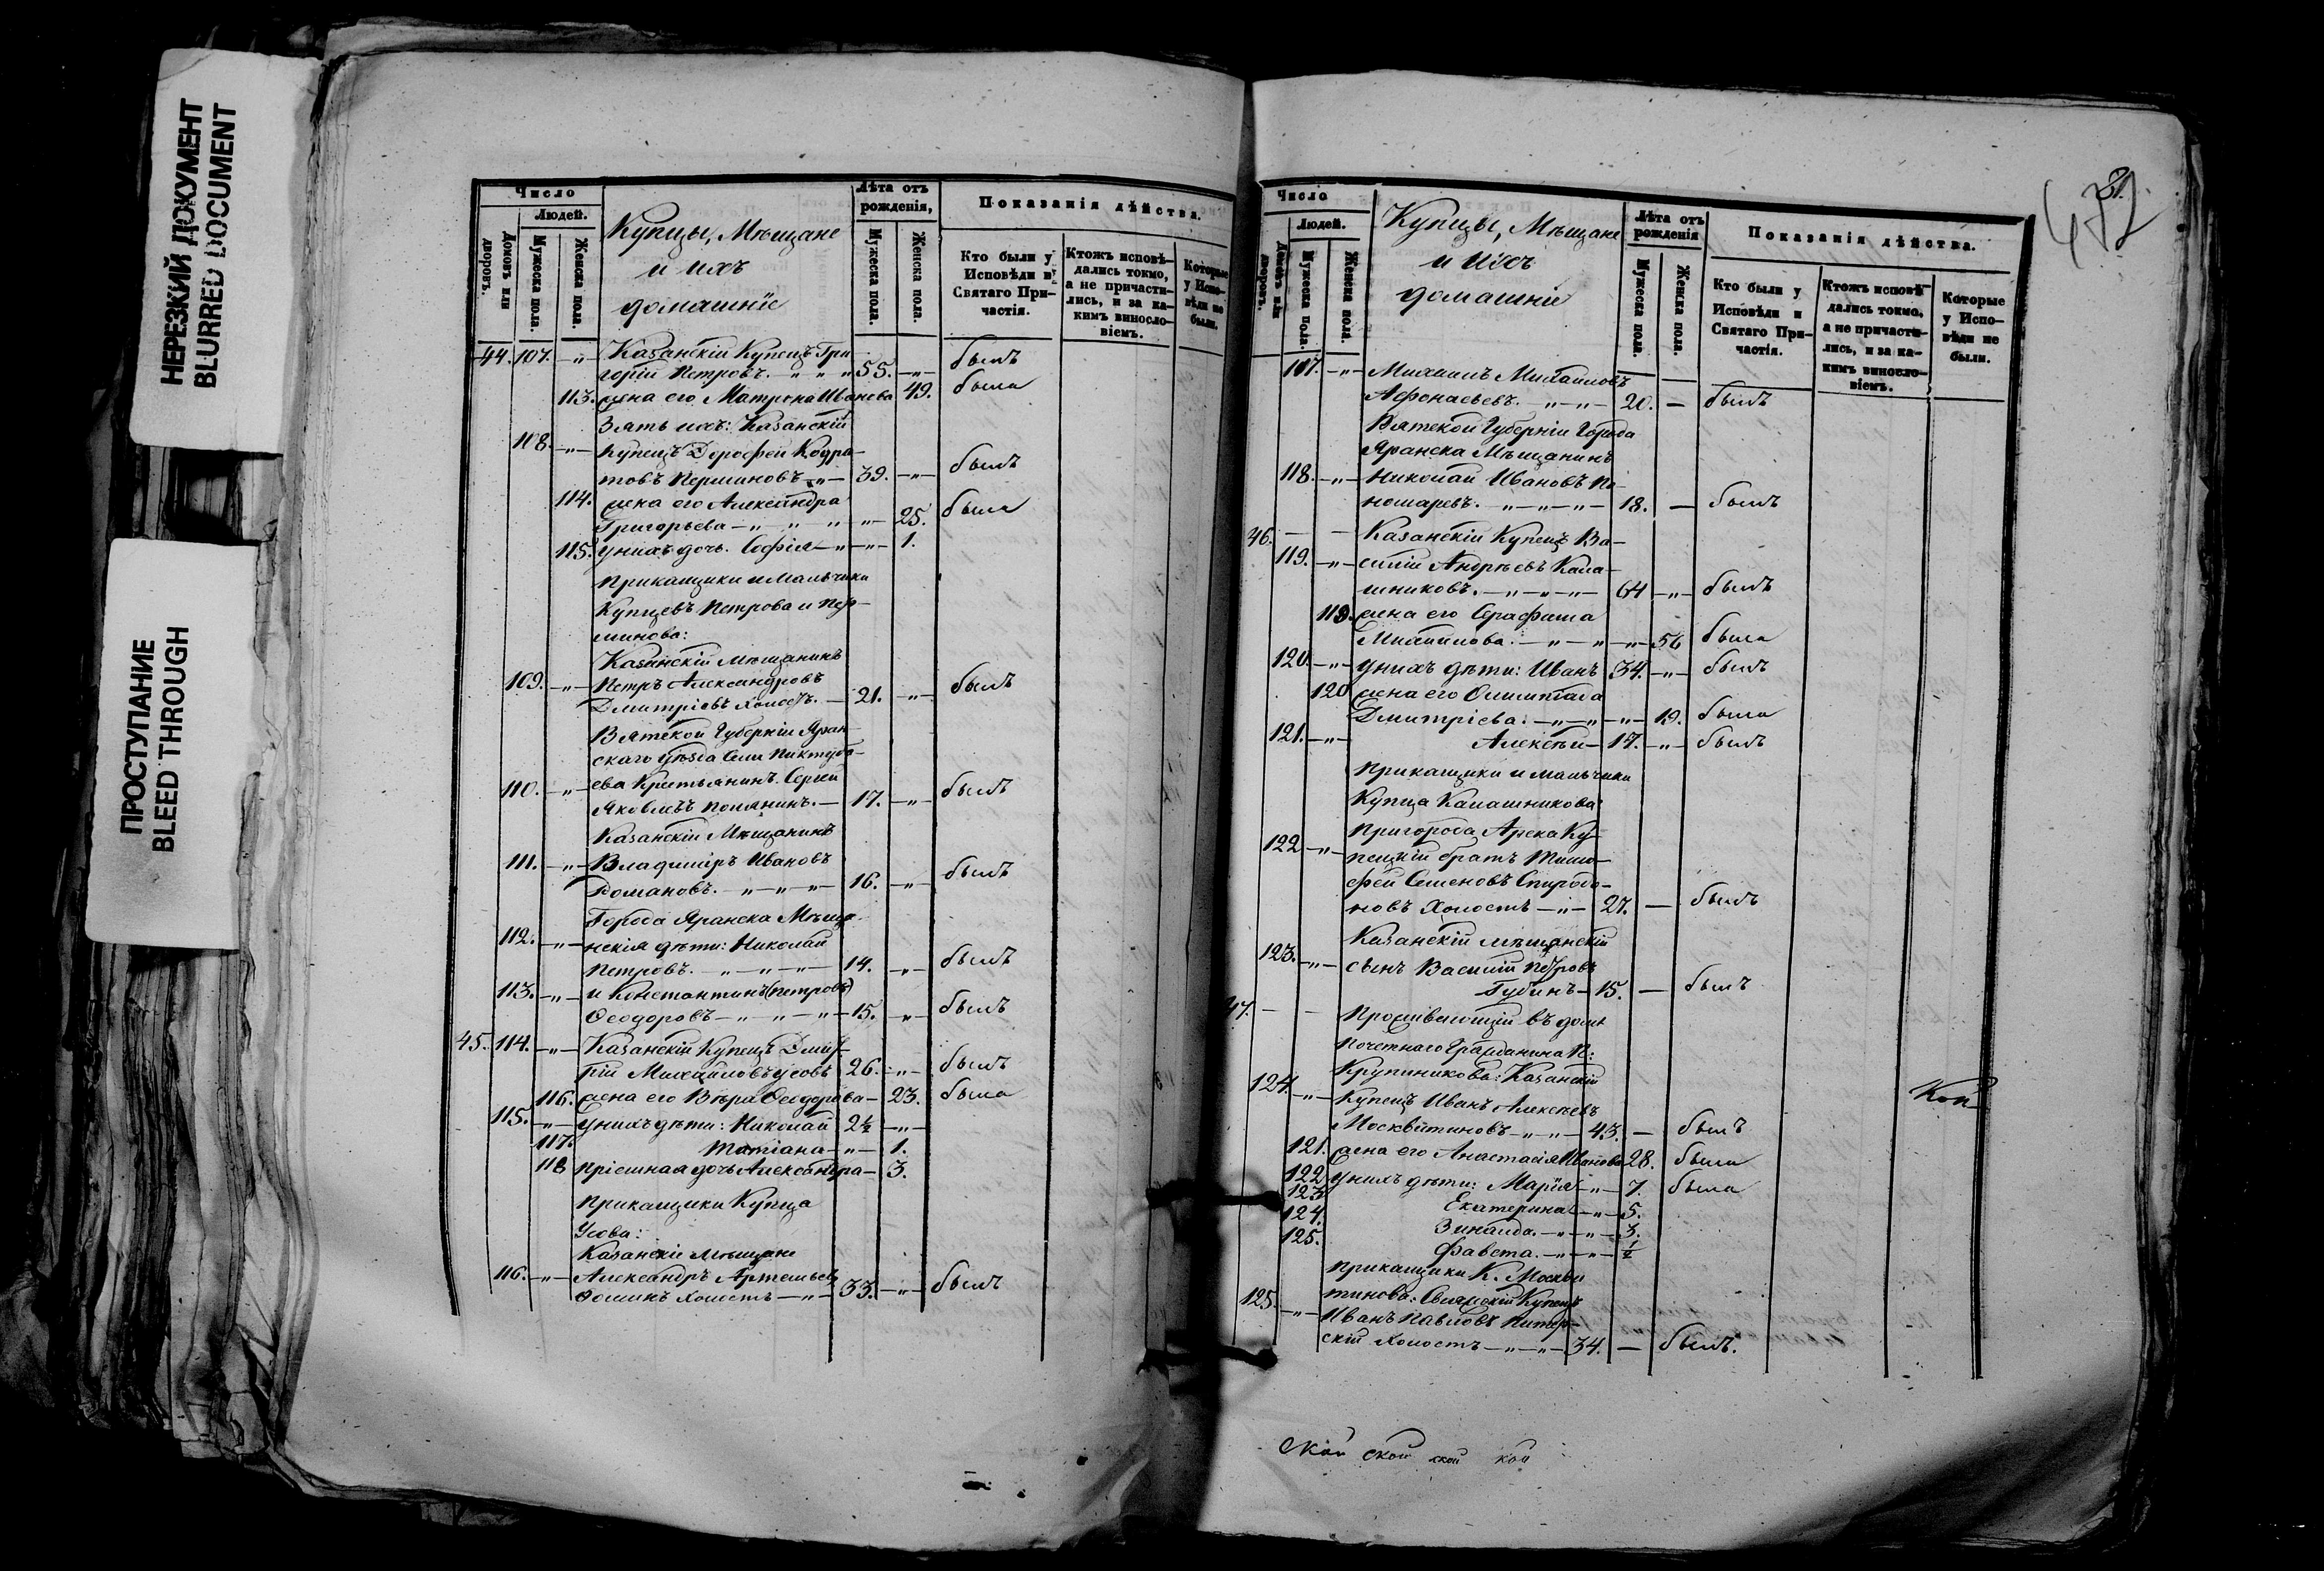 НЕРЕЗКИЙ ДОКУМЕНТ
BLURRED DOCUMENT
ПРОСТУПАНИЕ
BLEED THROUGH
Число
Людей.
Домовъ или дворовъ.
Мужеска пола.
Женска пола.
Купцы, Мѣщане
и ихъ
домашніе
Лѣта отъ рожденія,
Мужеска пола.
Женска пола.
Показанія дѣйства.
Кто были у Исповѣди и Святаго Причастія.
Ктожъ исповѣдались токмо, а не причастились, и за какимъ винословіемъ.
Которые у Исповѣди не были.
44. 107. —„— Казанскій Купецъ Гри
горій Петровъ. „ „ „ 55. —„— былъ
113. жена его Матрона Иванова 49. была
Зять ихъ: Казанскій
108. —„— Купецъ Дорофей Кодра-
товъ Перминовъ —„— 39. —„— былъ
114. жена его Александра
Григорьева —„ „ „ „— 25. была
115. у нихъ дочь. Софія —„—„— 1.
Прикащики и Мальчики
Купцевъ Петрова и Пер-
минова:
Казанскій Мѣщанинъ
109. —„— Петръ Александровъ
Дмитріевъ холостъ. — 21. —„— былъ
Вятской Губерніи Яран-
скаго уѣзда Села
110. —„— ева Крестьянинъ. Сергей
Яковлевъ — 17. —„— былъ
Казанскій Мѣщанинъ
111. —„— Владиміръ Ивановъ
Романовъ. —„—„—„— 16. —„— былъ
Города Яранска Мѣща-
112. —„— нскія дѣти: Николай
Петровъ. —„—„—„— 14. —„— былъ
113. —„— и Константинъ (Петровъ)
Ѳеодоровъ —„—„—„— 15. —„— былъ
45. 114. —„— Казанскій Купецъ Дмит-
рій Михайловъ Усовъ 26. —„— былъ
116. жена его Вѣра Ѳеодорова — 23. была
115. —„— У нихъ дѣти: Николай 2½ —„—
117. Татіана —„— 1.
118 пріемная дочь Александра — 3.
Прикащики Купца
Усова:
Казанскіе Мѣщане
116. —„— Александръ Артемьевъ
Ѳоминъ холостъ —„— 33. —„— былъ
21.
472
Число
Людей.
Домовъ или дворовъ.
Мужеска пола.
Женска пола.
Купцы, Мѣщане
и ихъ
домашніе
Лѣта отъ рожденія
Мужеска пола.
Женска пола.
Показанія дѣйства.
Кто были у Исповѣди и Святаго Причастія.
Ктожъ исповѣдались токмо, а не причастились, и за какимъ винословіемъ.
Которые у Исповѣди не были.
117. —„— Михаилъ Михаиловъ
Афонасьевъ. —„—„— 20. — былъ
Вятской Губерніи Города
Яранска Мѣщанинъ
118. —„— Николай Ивановъ По-
номаревъ. —„—„—„— 18. — былъ
46. — — Казанскій Купецъ Ва-
119. —„— силій Андрѣевъ Кала-
шниковъ. —„—„—„— 64 —„— былъ
119. жена его Серафима
Михайлова. —„—„—„— 56 была
120. —„— у нихъ дѣти: Иванъ 34. —„— былъ
120 жена его Олимпіада
Дмитріева: —„—„—„— 19. была
121. —„— Алексѣй — 17. —„— былъ
Прикащики и мальчики
Купца Калашникова:
Пригорода Арска Ку-
122 —„— пецкій братъ Тимо-
фей Семеновъ Спиридо-
новъ Холостъ —„— 27. — былъ
Казанскій мѣщанскій
123. —„— сынъ Василій Петровъ
Губинъ — 15. — былъ
47. — — Проживающій въ домѣ
Почетнаго Гражданина П:
Крупиникова: Казанскій
124. —„— Купецъ Иванъ Алексѣевъ
Москвитиновъ —„—„— 43. — былъ
Кой
121. жена его Анастасія Иванова 28. была
122 у нихъ дѣти: Марія —„— 7. была
123 Екатерина —„— 5.
124. Зинаида. —„—„— 3.
125. Фавста. —„—„— ½
Прикащики К. Москви
тинова: Свіяжскій Купецъ
125. —„— Иванъ Павловъ Питер-
скій Холостъ —„—„— 34. — былъ.
Ской ской ской кой